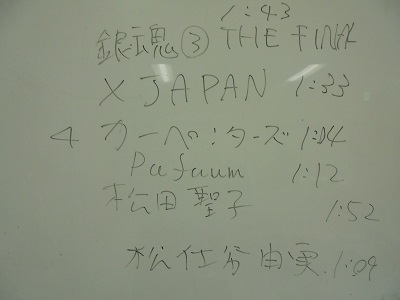 1:43
銀魂③ THE FINAL
X JAPAN 1:33
4 カーペンターズ 1:04
Pafuum 1:12
松田聖子 1:52
松任谷由実 1:09